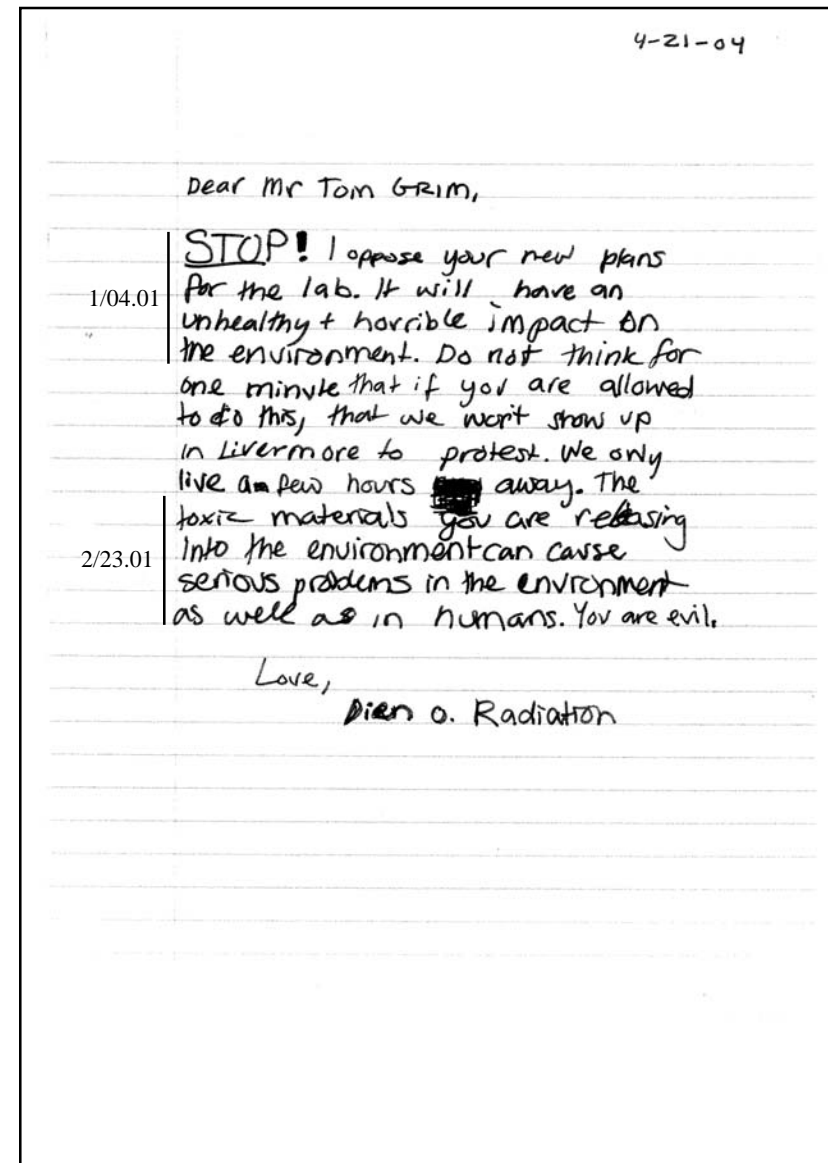 4-21-04
Dear Mr Tom GRIM,
STOP! I oppose your new plans
1/04.01
for the lab. It will have an
unhealthy + horrible impact on
the environment. Do not think for
one minute that if you are allowed
to do this, that we won't show up
in Livermore to protest. We only
live a few hours away. The
toxic materials you are releasing
2/23.01
into the environment can cause
serious problems in the envronment
as well as in humans. You are evil.
Love,
Dien O. Radiation